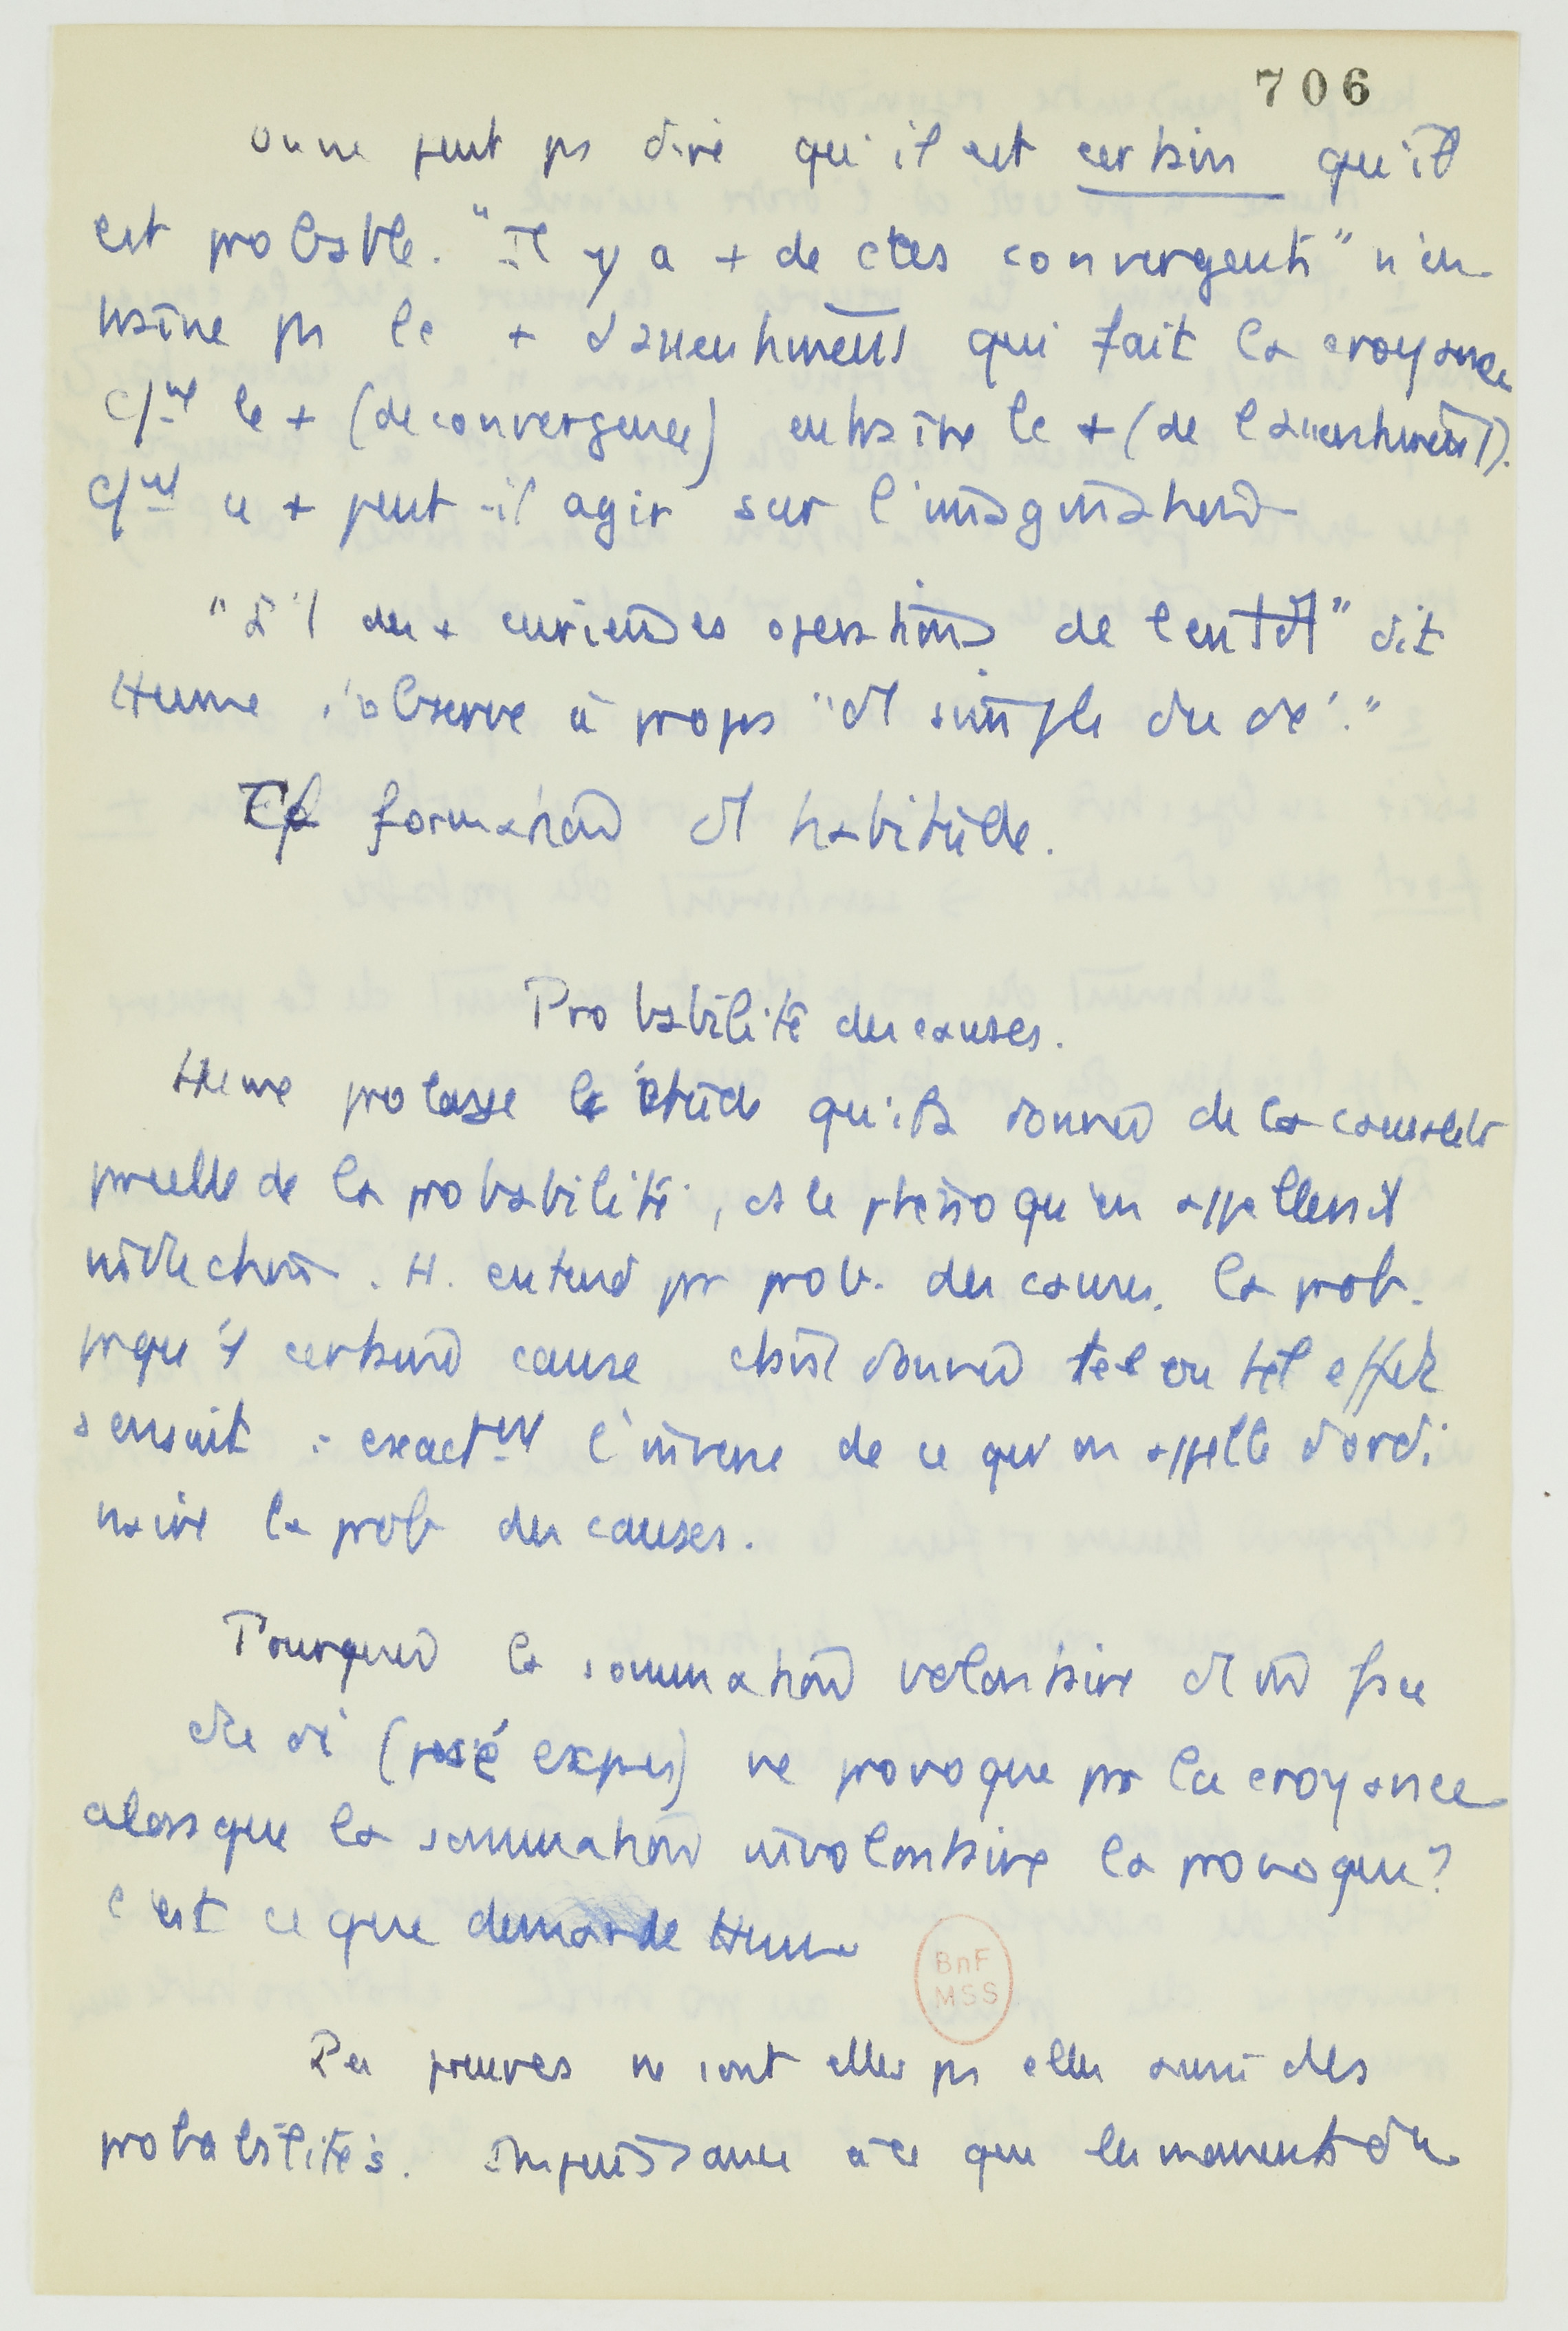 706
on ne peut ps dire qu'il est certain qu'il
est probable. "Il y a + de ctes convergents" n'en-
traîne ps le + d'assentiment qui fait la croyance
C/nt le + (de convergence) entraîne le + (de l'assentiment).
C/nt ce + peut-il agir sur l'imagination
des + curieuses opérations de l'entdt" dit
Hume s'observe à propos "dt simple du dé."
Cf formation dt habitude.
Probabilité des causes.
Hume prolonge l'étude qu'il a donné de la causalité
par celle de la probabilité, et le phéno qu'on appellerait
induction. H. entend pr prob. des causes, la prob.
pr qu'1 certain cause étant donné tel ou tel effet
s'ensuit : exactnt l'inverse de ce qu'on appelle d'ordi
naire la prob des causes.
Pourquoi la sommation volontaire d'un face
du dé (posé exprès) ne provoque ps la croyance
alors que la sommation involontaire la provoque?
c'est ce que demande Hume
Les preuves ne sont elles ps elles aussi des
probabilités. Impuissance à ce que les moments du
BnF
MSS